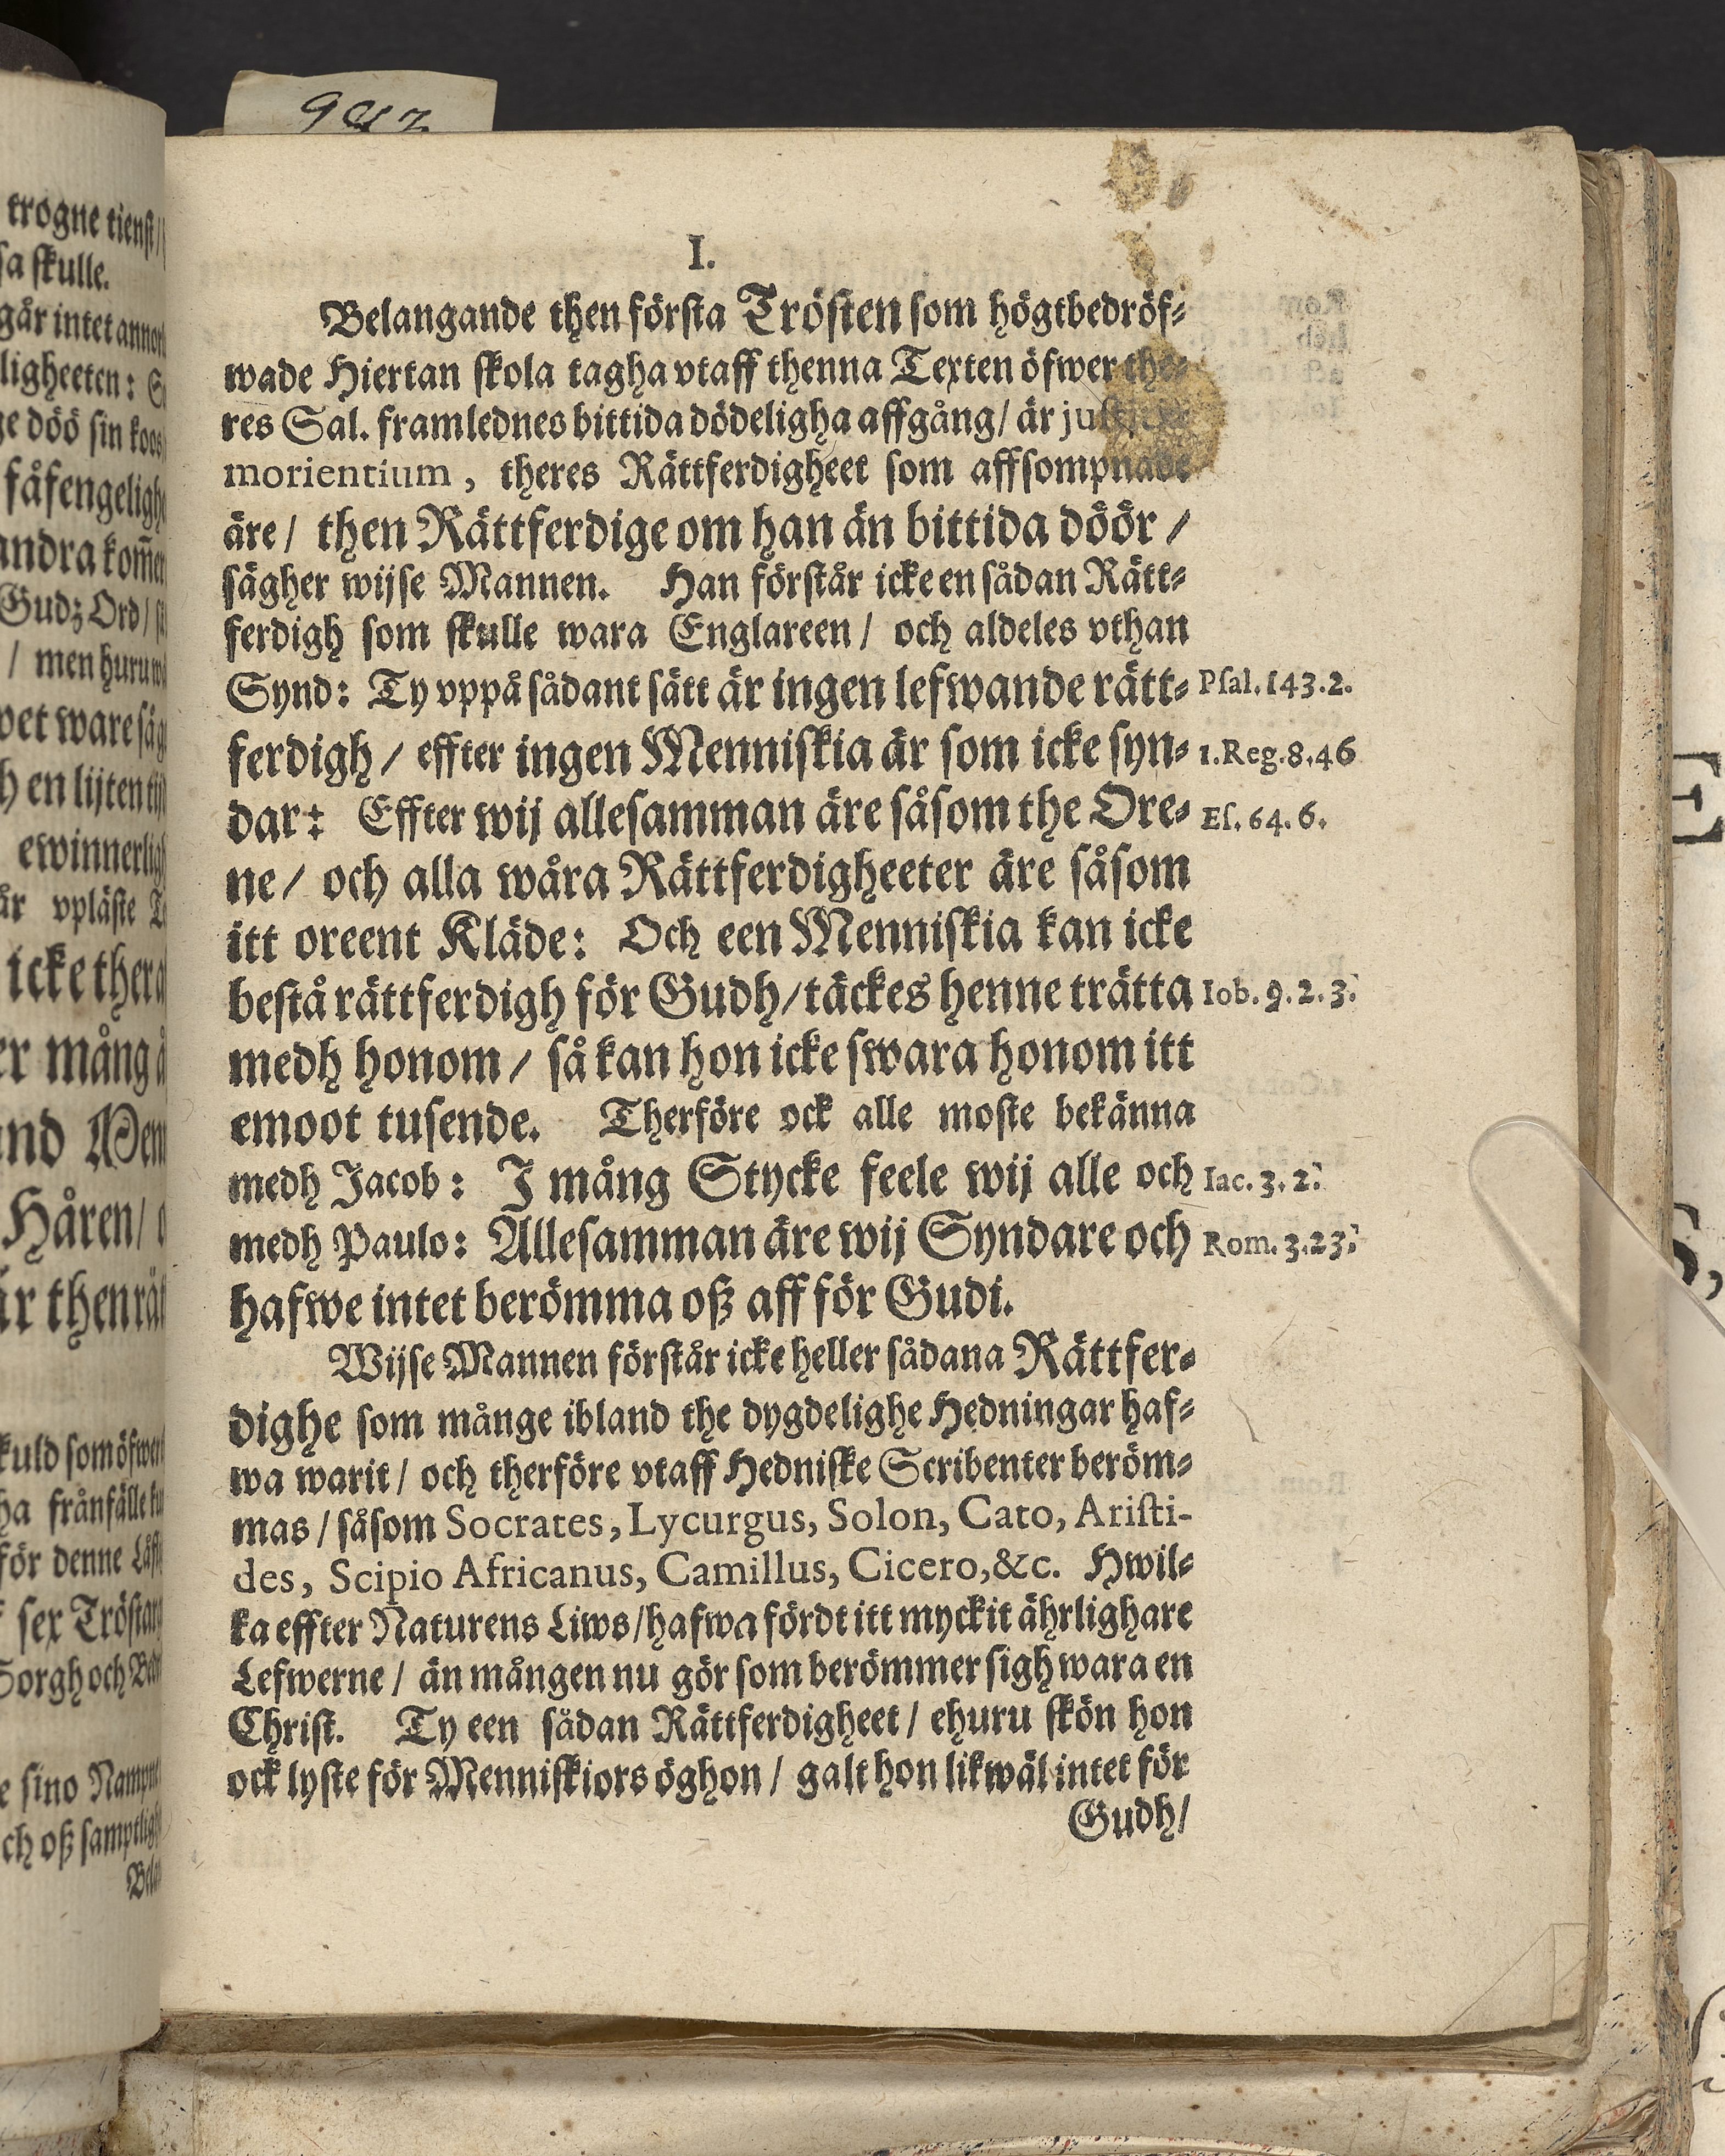 9412
I.
Belangande then första Trösten som högtbedröf-
wade Hiertan skola tagha vtaff thenna Texten öfwer the-
res Sal. framlednes bittida dödeligha affgång/ är
morientium, theres Rättferdigheet som affsompnade
äre/ then Rättferdige om han än bittida döör/
sägher wijse Mannen. Han förstår icke en sådan Rätt-
ferdigh som skulle wara Englareen/ och aldeles vthan
Synd: Ty vppå sådant sätt är ingen lefwande rätt- Psal. 143.2.
ferdigh/ effter ingen Menniskia är som icke syn- 1. Reg. 8.46
dar: Effter wij allesamman äre såsom the Ore- Es. 64.6.
ne/ och alla wåra Rättferdigheeter äre såsom
itt oreent Kläde: Och een Menniskia kan icke
bestå rättferdigh för Gudh/ täckes henne trätta Iob. 9.2.3.
medh honom/ så kan hon icke swara honom itt
emoot tusende. Therföre ock alle moste bekänna
medh Jacob: J mång Stycke feele wij alle och Iac. 3.2.
medh Paulo: Allesamman äre wij Syndare och Rom. 3.23.
hafwe intet berömma oß aff för Gudi.
Wijse Mannen förstår icke heller sådana Rättfer-
dighe som månge ibland the dygdelighe Hedningar haf-
wa warit/ och therföre vtaff Hedniske Scribenter beröm-
mas/ såsom Socrates, Lycurgus, Solon, Cato, Aristi-
des, Scipio Africanus, Camillus, Cicero, &c. Hwil-
ka effter Naturens Liws/ hafwa fördt itt myckit ährlighare
Lefwerne/ än mången nu gör som berömmer sigh wara en
Christ. Ty een sådan Rättferdigheet/ ehuru skön hon
ock lyste för Menniskiors öghon/ galt hon likwäl intet för
Gudh/